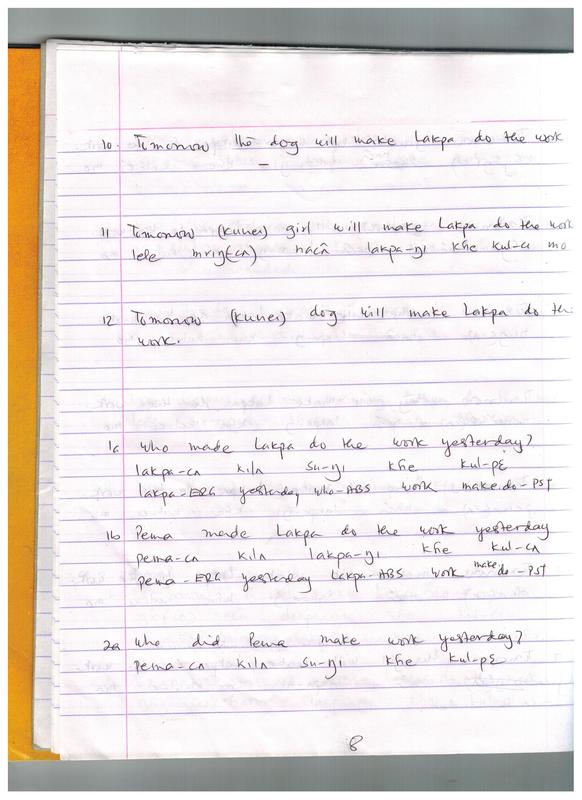 10. Tomorrow the dog will make Lakpa do the work
11 Tomorrow (kunei) girl will make Lakpa do the work
lele mriŋ(cʌ) nacã lakpa-ŋɪ khe kul-a mo
12 Tomorrow (kunei) dog will make Lakpa do the
work.
1a who made Lakpa do the work yesterday?
lakpa-cʌ kilʌ su-ŋɪ khe kul-pɛ
lakpa-ERG yesterday who-ABS work make do-PST
1b Pema made Lakpa do the work yesterday
pema-cʌ kilʌ lakpa-ŋɪ khe kul-cʌ
pema-ERG yesterday Lakpa-ABS work make do-PST
2a who did Pema make work yesterday?
pema-cʌ kilʌ su-ŋɪ khe kul-pɛ
8